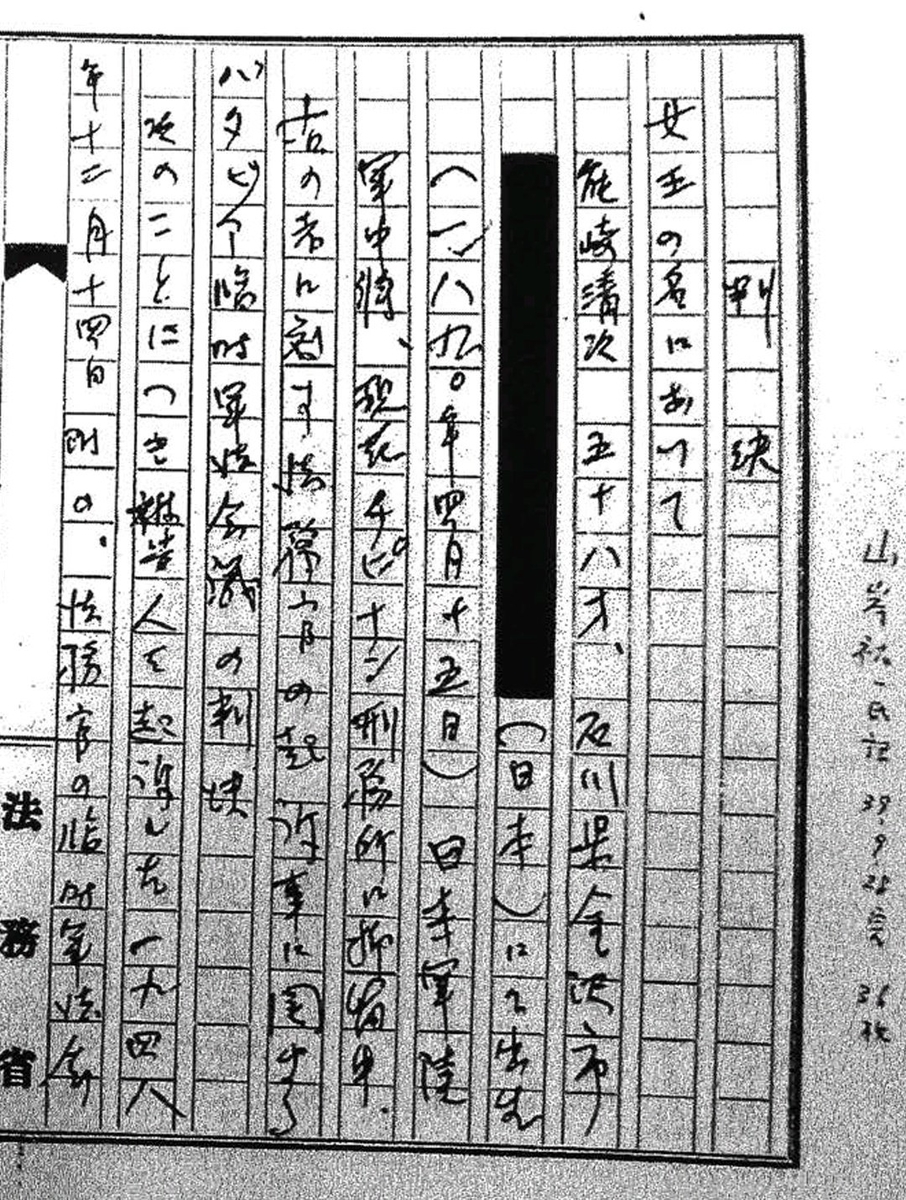 判決
女王の名において
能崎清次 五十八才、 石川県金沢市
(日本)にて出生
(一八九〇年四月十五日) 日本軍陸
軍中将、 現在チピナン刑務所に拘留中.
右の者に対する法務官の起訴事に関する
バタビア臨時軍法会議の判決
次のことにつき被告人を起訴した一九四八
年十二月十四日附の. 法務官の臨時軍法会
法務省
山岸 氏記 37.9.28 36